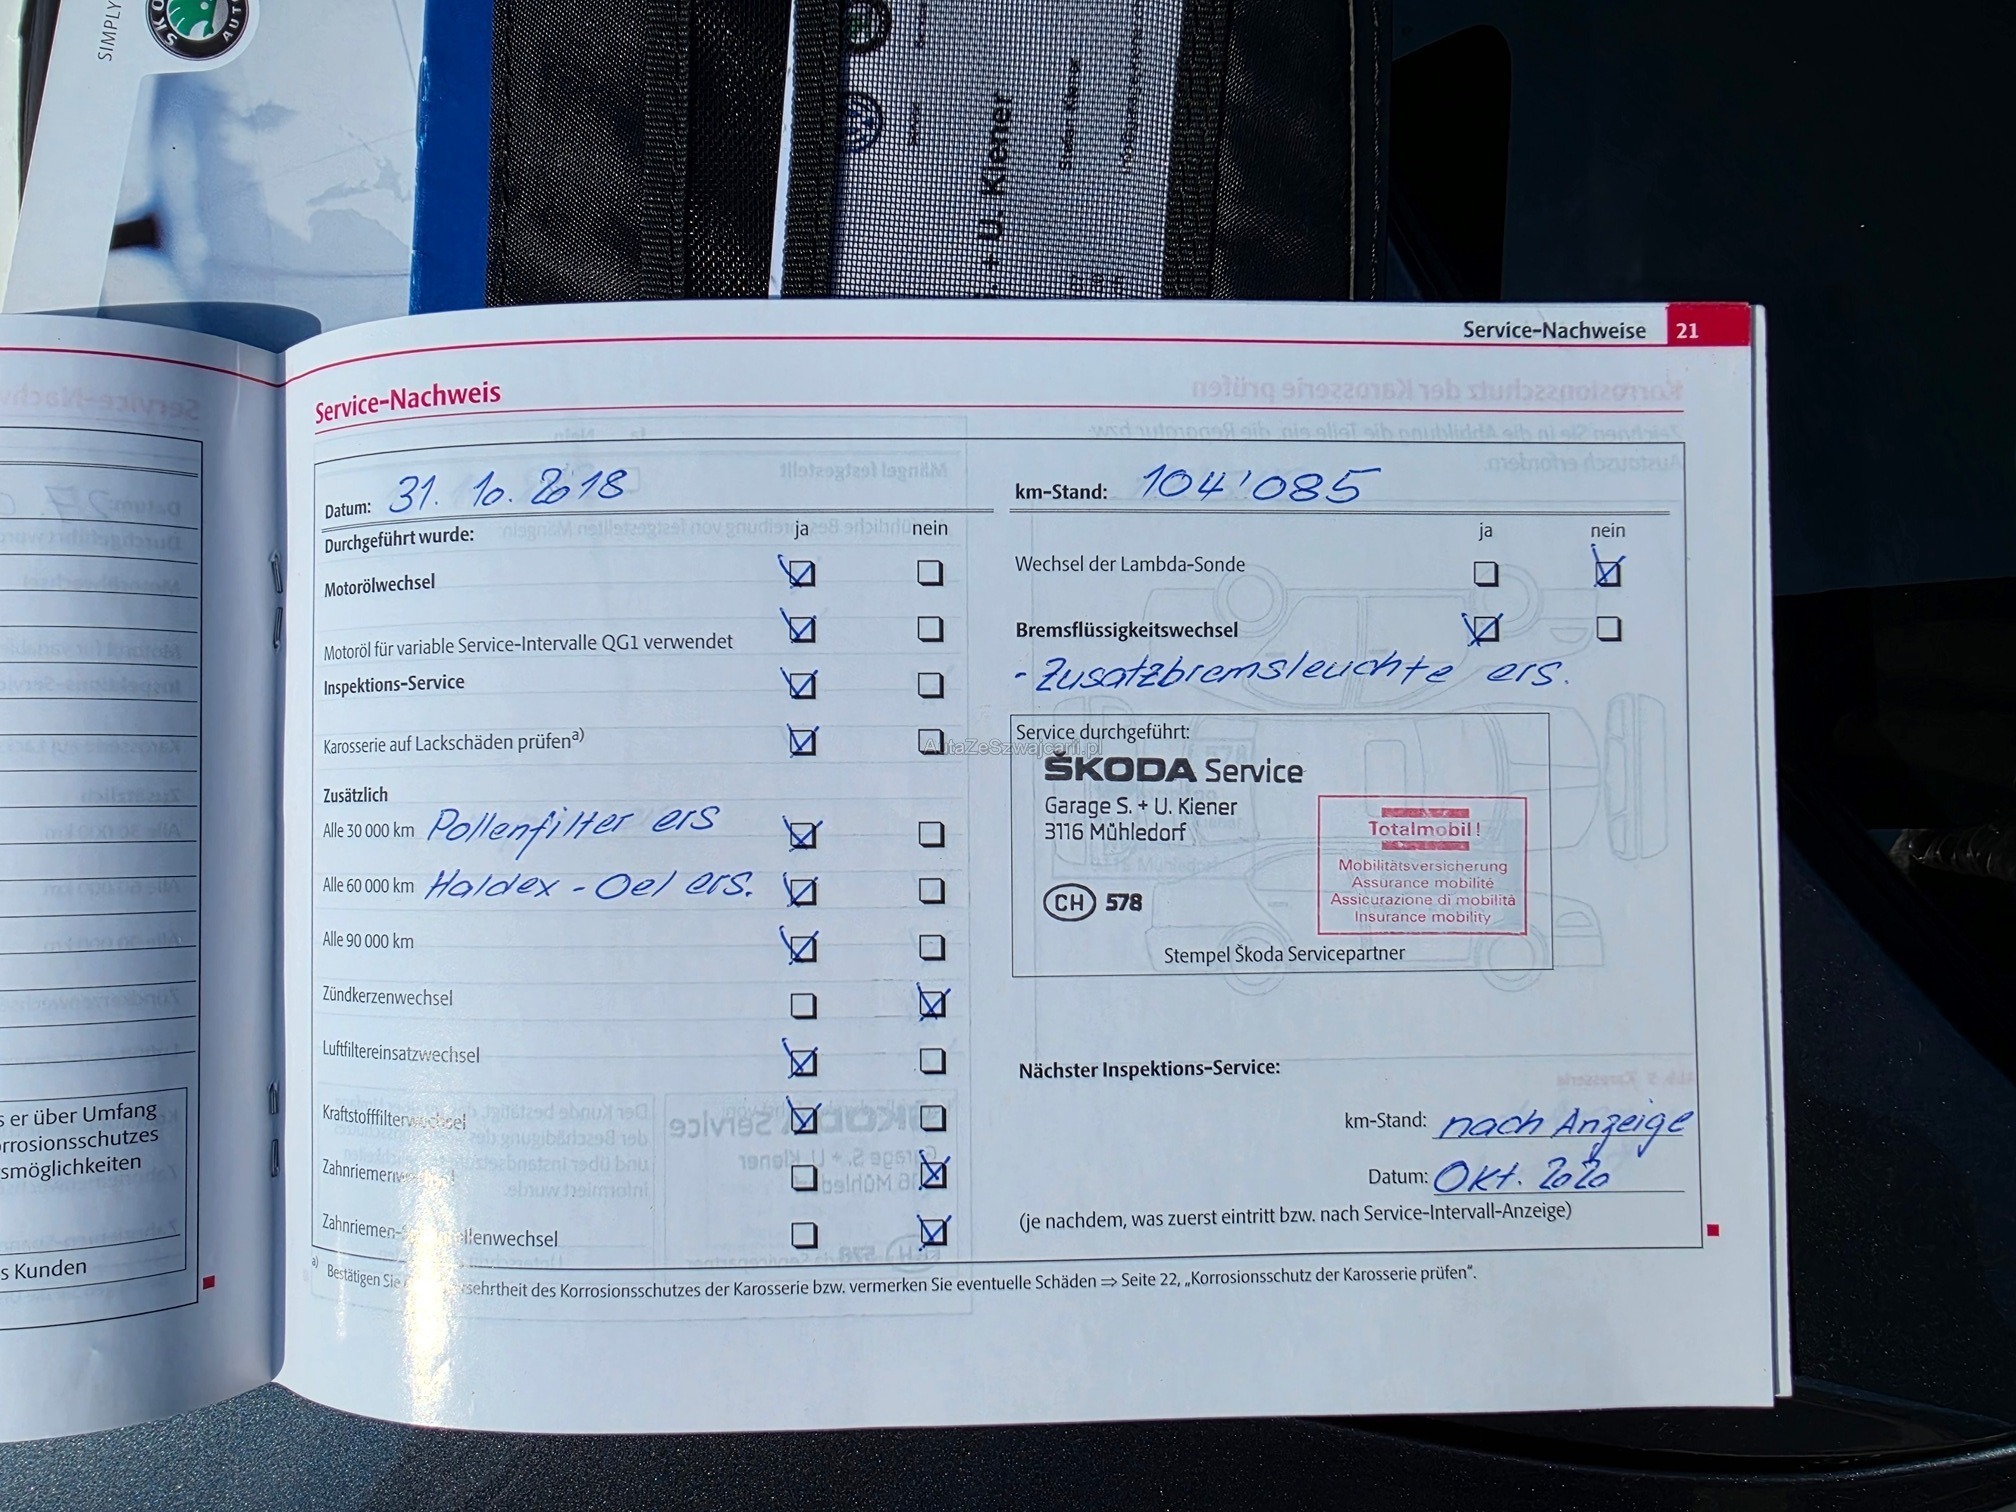 SIMPLY
SKODA AUTO
. + U. Kiener
Service-Nachweise 21
Service-Nachweis
Datum: 31. 10. 2018
km-Stand: 104'085
Durchgeführt wurde: ja nein
ja nein
Motorölwechsel
Wechsel der Lambda-Sonde
Motoröl für variable Service-Intervalle QG1 verwendet
Bremsflüssigkeitswechsel
Inspektions-Service
- Zusatzbremsleuchte ers.
Karosserie auf Lackschäden prüfen a)
AutaZeSzwajcarii.pl
Service durchgeführt:
ŠKODA Service
Garage S. + U. Kiener
3116 Mühledorf
CH 578
Totalmobil!
Mobilitätsversicherung
Assurance mobilité
Assicurazione di mobilità
Insurance mobility
Stempel Škoda Servicepartner
Zusätzlich
Alle 30 000 km Pollenfilter ers
Alle 60 000 km Haldex - Oel ers.
Alle 90 000 km
Zündkerzenwechsel
Luftfiltereinsatzwechsel
Kraftstofffilterwechsel
Zahnriemen
Zahnriemen- llenwechsel
Nächster Inspektions-Service:
km-Stand: nach Anzeige
Datum: Okt. 2020
(je nachdem, was zuerst eintritt bzw. nach Service-Intervall-Anzeige)
a) Bestätigen Sie sehrtheit des Korrosionsschutzes der Karosserie bzw. vermerken Sie eventuelle Schäden ⇒ Seite 22, „Korrosionsschutz der Karosserie prüfen“.
s er über Umfang
orrosionsschutzes
smöglichkeiten
s Kunden